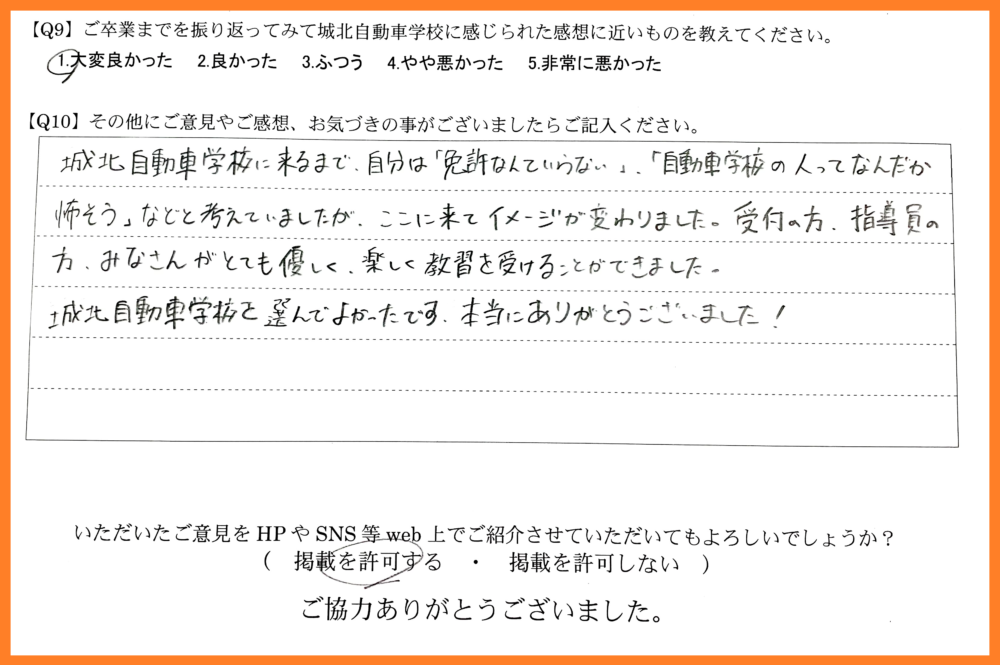 【Q9】ご卒業までを振り返ってみて城北自動車学校に感じられた感想に近いものを教えてください。
1.大変良かった 2.良かった 3.ふつう 4.やや悪かった 5.非常に悪かった
【Q10】その他にご意見やご感想、お気づきの事がございましたらご記入ください。
城北自動車学校に来るまで、自分は「免許なんていらない」、「自動車学校の人ってなんだか
怖そう」などと考えていましたが、ここに来てイメージが変わりました。受付の方、指導員の
方、みなさんがとても優しく、楽しく教習を受けることができました。
城北自動車学校を選んでよかったです。本当にありがとうございました!
いただいたご意見をHPやSNS等web上でご紹介させていただいてもよろしいでしょうか?
( 掲載を許可する ・ 掲載を許可しない )
ご協力ありがとうございました。